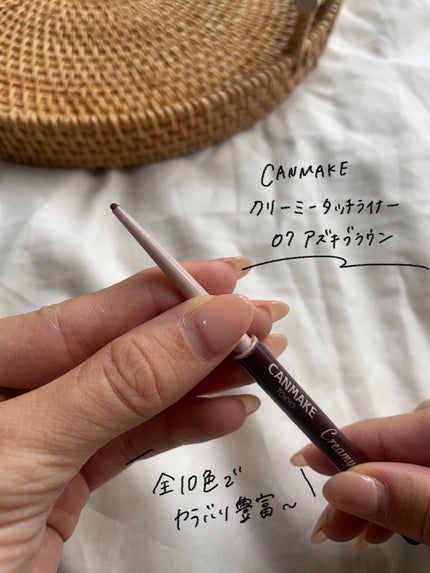 CANMAKE
クリーミータッチライナー
07 アズキブラウン
CANMAKE
TOKYO
Creamy
全10色で
カラバリ豊富〜